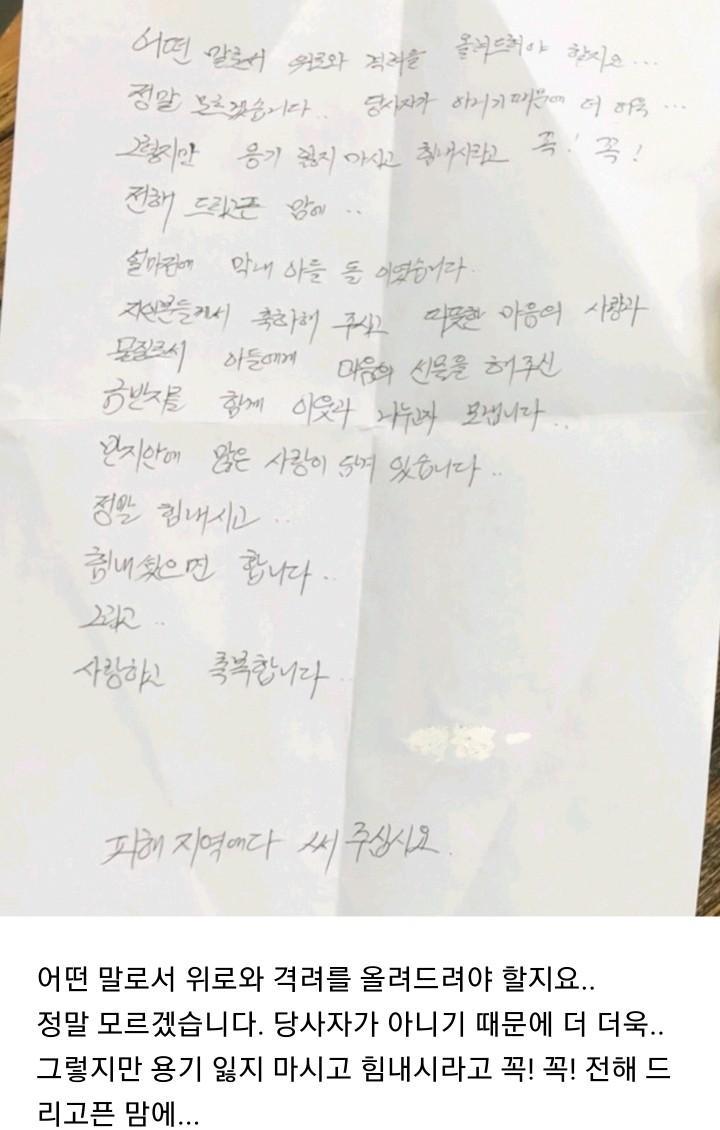 어떤 말로서 위로와 격려를 올려드려야 할지요...
정말 모르겠습니다.. 당사자가 아니기 때문에 더 더욱 ...
그렇지만 용기 잃지 마시고 힘내시라고 꼭! 꼭!
전해 드리고픈 맘에 ..
얼마전에 막내 아들 돌 이였습니다.
지인분들께서 축하해 주시고 따뜻한 마음의 사랑과
물질로서 아들에게 마음의 선물을 해주신
금반지를 함께 이웃과 나누고자 보냅니다..
반지안에 많은 사랑이 담겨 있습니다..
정말 힘내시고 ..
힘내셨으면 합니다..
그리고 ..
사랑하고 축복합니다..
피해 지역에다 써 주십시요.
어떤 말로서 위로와 격려를 올려드려야 할지요..
정말 모르겠습니다. 당사자가 아니기 때문에 더 더욱..
그렇지만 용기 잃지 마시고 힘내시라고 꼭! 꼭! 전해 드
리고픈 맘에...